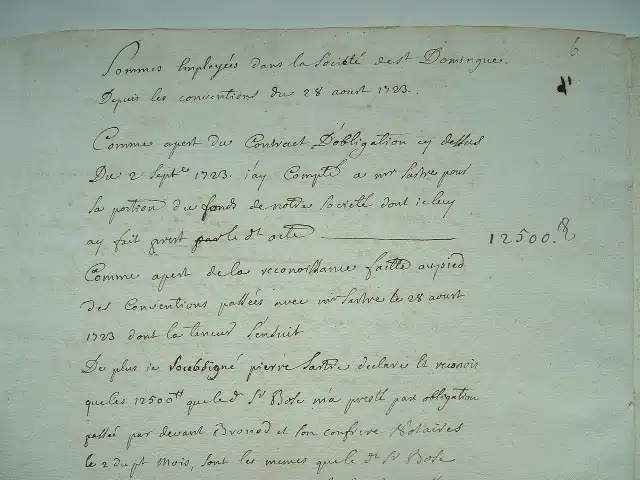 6
Sommes Employées dans la Société de St Domingue.
Depuis les conventions du 28 aoust 1723.
Comme apert du Contract D'obligation cy dessus
Du 2 Septe 1723. j'ay Compté a mr Sartre pour
sa portion du fonds de notre Societté dont je luy
ay fait prest par le dt acte 12500.
Comme apert de la reconoissance faitte au pied
des Conventions passées avec mr Sartre le 28 aoust
1723 dont la teneur s'ensuit
De plus je Soubsigné pierre Sartre declare Et reconois
que les 12500tt que le dt Sr Bose m'a presté par obligation
passée par devant Bronod et son confrere Notaires
le 2 du pt Mois, sont les memes que le dt Sr Bose